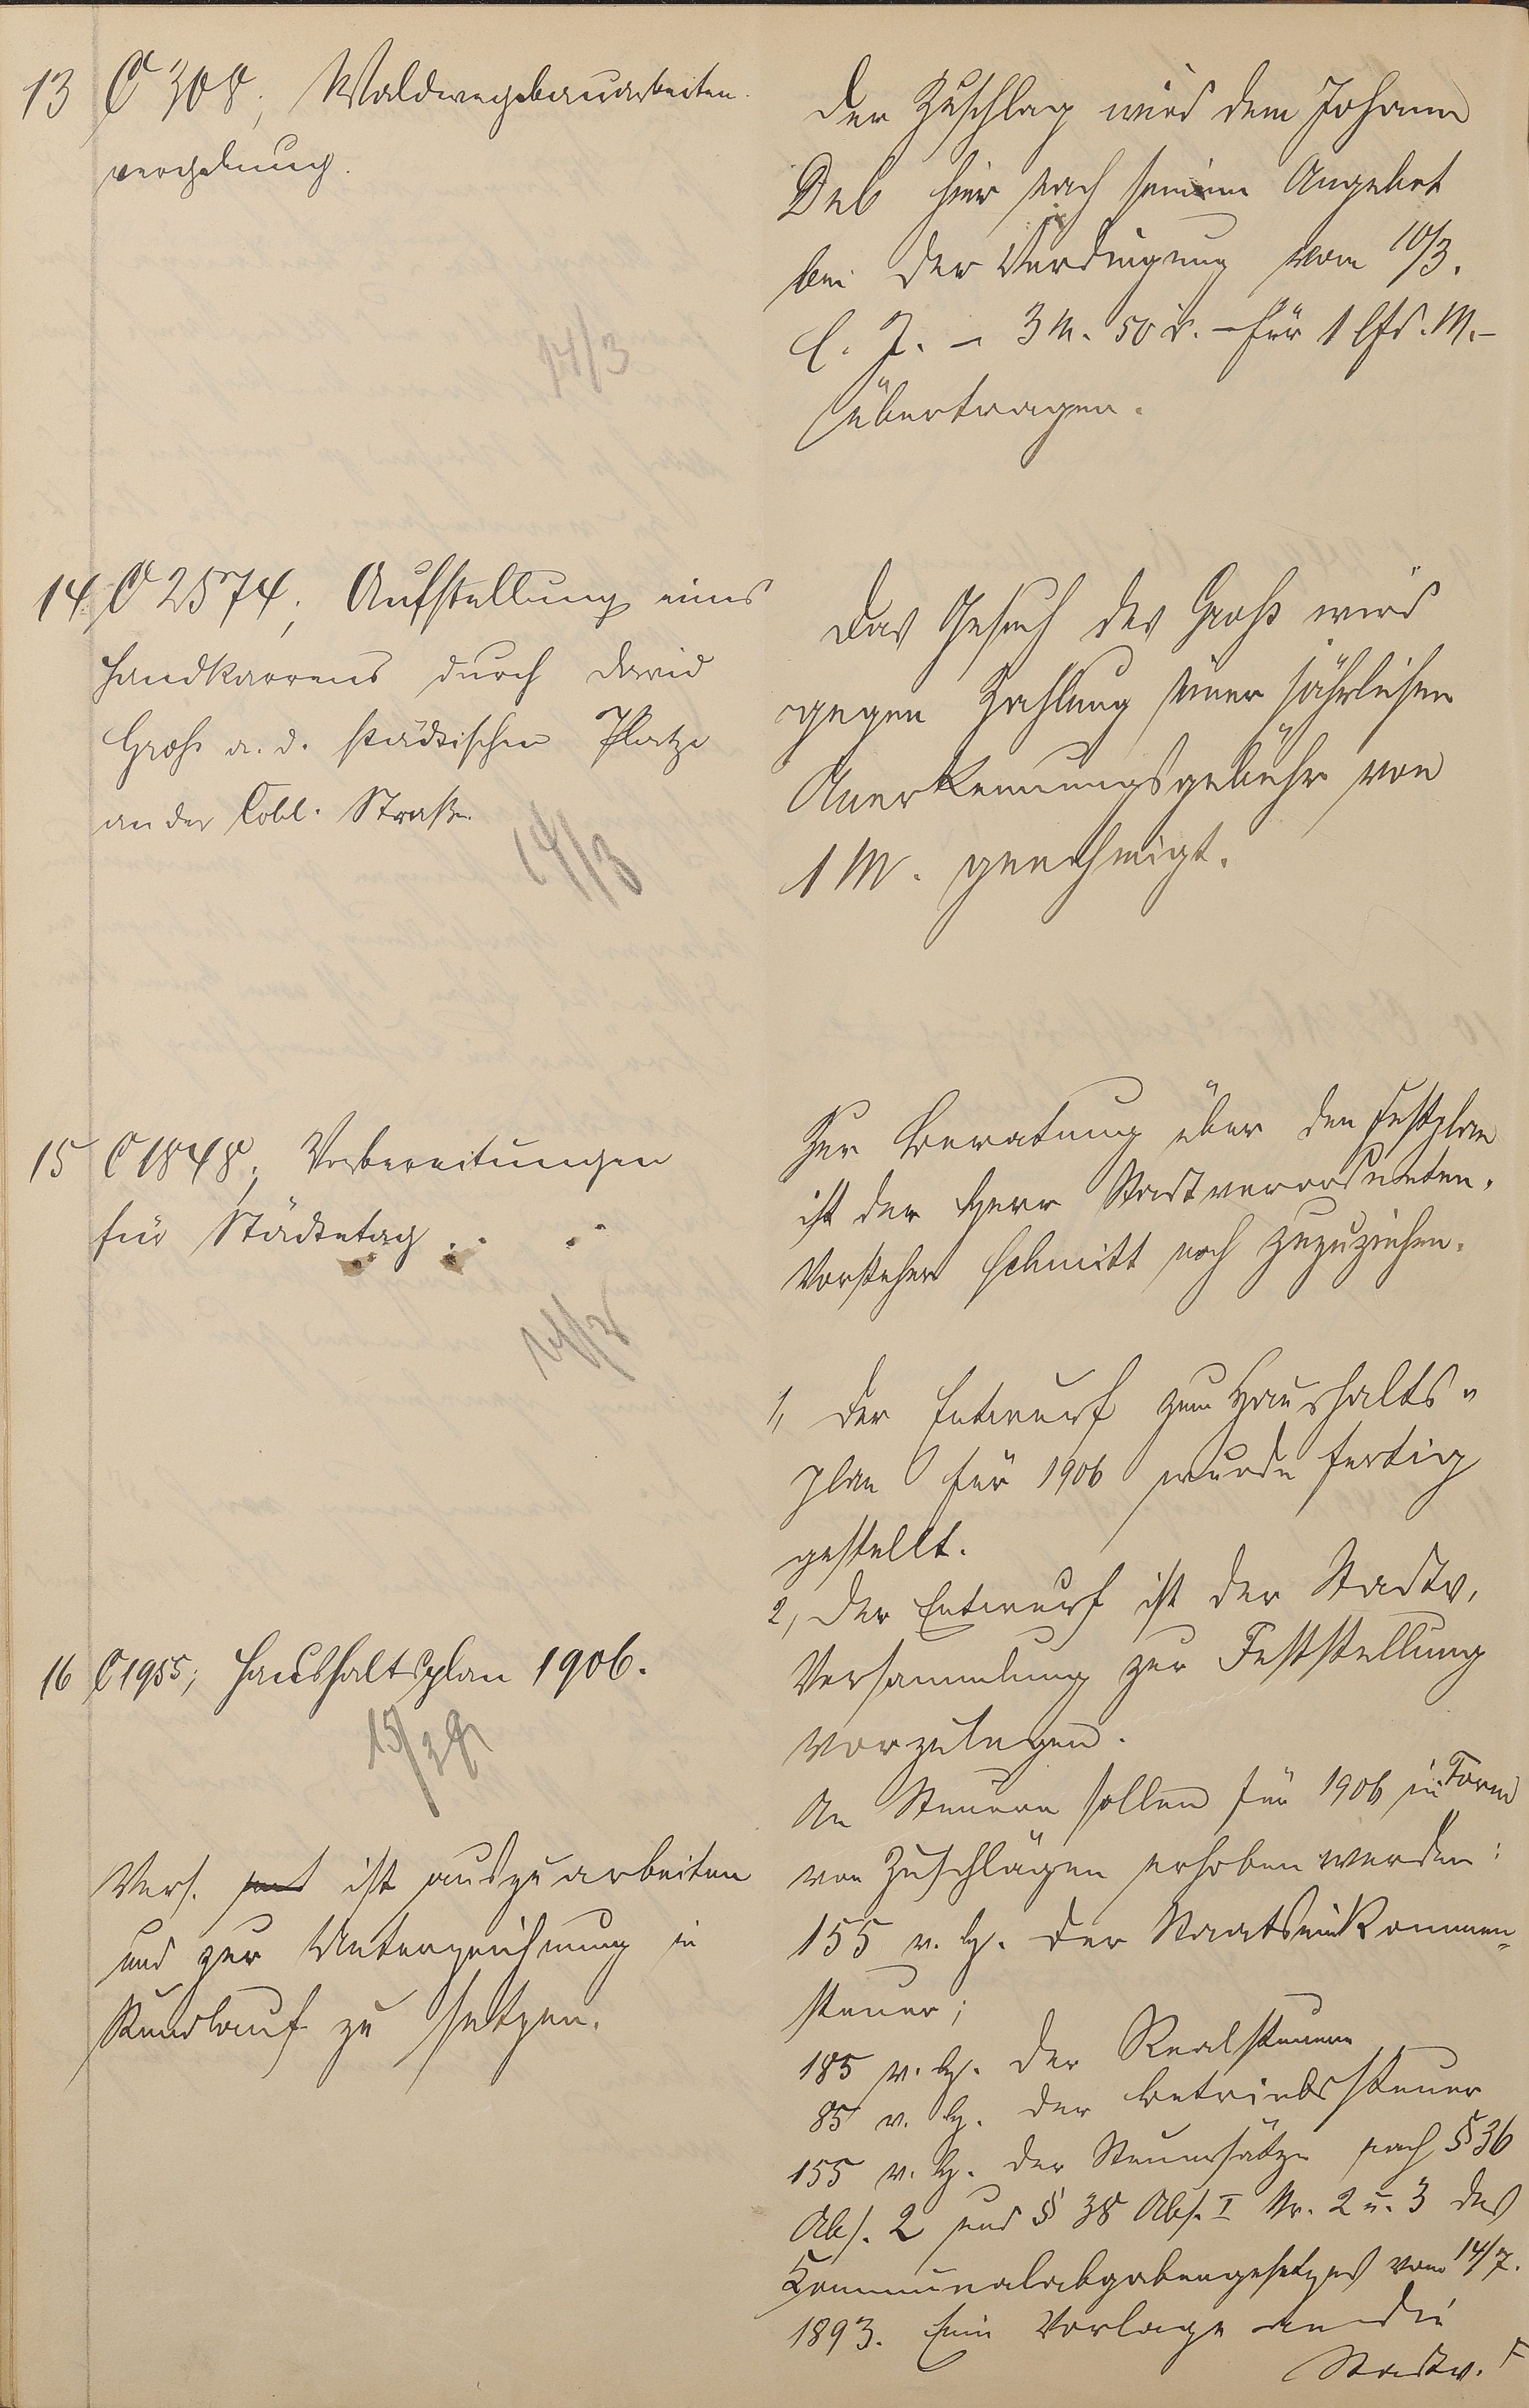 13 C 308; Waldwegebauarbeiten-
vergebung.
14/3
Der Zuschlag wird dem Johann
hier nach seinem Angebot
bei der Verdingung vom 10/3.
l. J. - 3 M. 50 d. - für 1 lfd. M. -
übertragen.
14 C 2574; Aufstellung eines
Handkarrens durch David
Groß a. d. städtischen Platze
an der Cobl. Straße.
14/3
Das Gesuch des Groß wird
gegen Zahlung einer jährlichen
Anerkennungsgebühr von
1 M. genehmigt.
15 C 1848; Vorbereitungen
für Städtetag.
14/3
Zur Beratung über den Festplan
ist der Herr Stadtverordneten-
Vorsteher Schmitt noch zuzuziehen.
16 C 1955; Haushaltsplan 1906.
15/3
Vers. ist auszuarbeiten
und zur Unterzeichnung in
Rundlauf zu setzen.
1, Der Entwurf zum Haushalts-
plan für 1906 wurde fertig
gestellt.
2, Der Entwurf ist der Stadtv.
Versammlung zur Feststellung
vorzulegen.
An Steuern sollen für 1906 in Form
von Zuschlägen erhoben werden:
155 v. H. der Staatseinkommen-
steuer;
185 v. H. der Realsteuern
85 v. H. der Betriebssteuer
155 v. H. der Steuersätze nach § 36
Abs. 2 und § 38 Abs. I Nr. 2 u. 3 des
Kommunalabgabengesetzes vom 14/7.
1893. Vorlage an die
Stadtv.